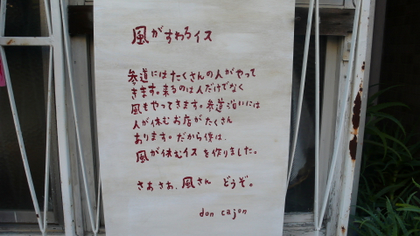 風がすわるイス
参道にはたくさんの人がやって
きます。来るのは人だけでなく
風もやってきます。参道沿いには
人が休むお店がたくさん
あります。だから僕は、
風が休むイスを作りました。
さぁさぁ、風さん どうぞ。
don cajon